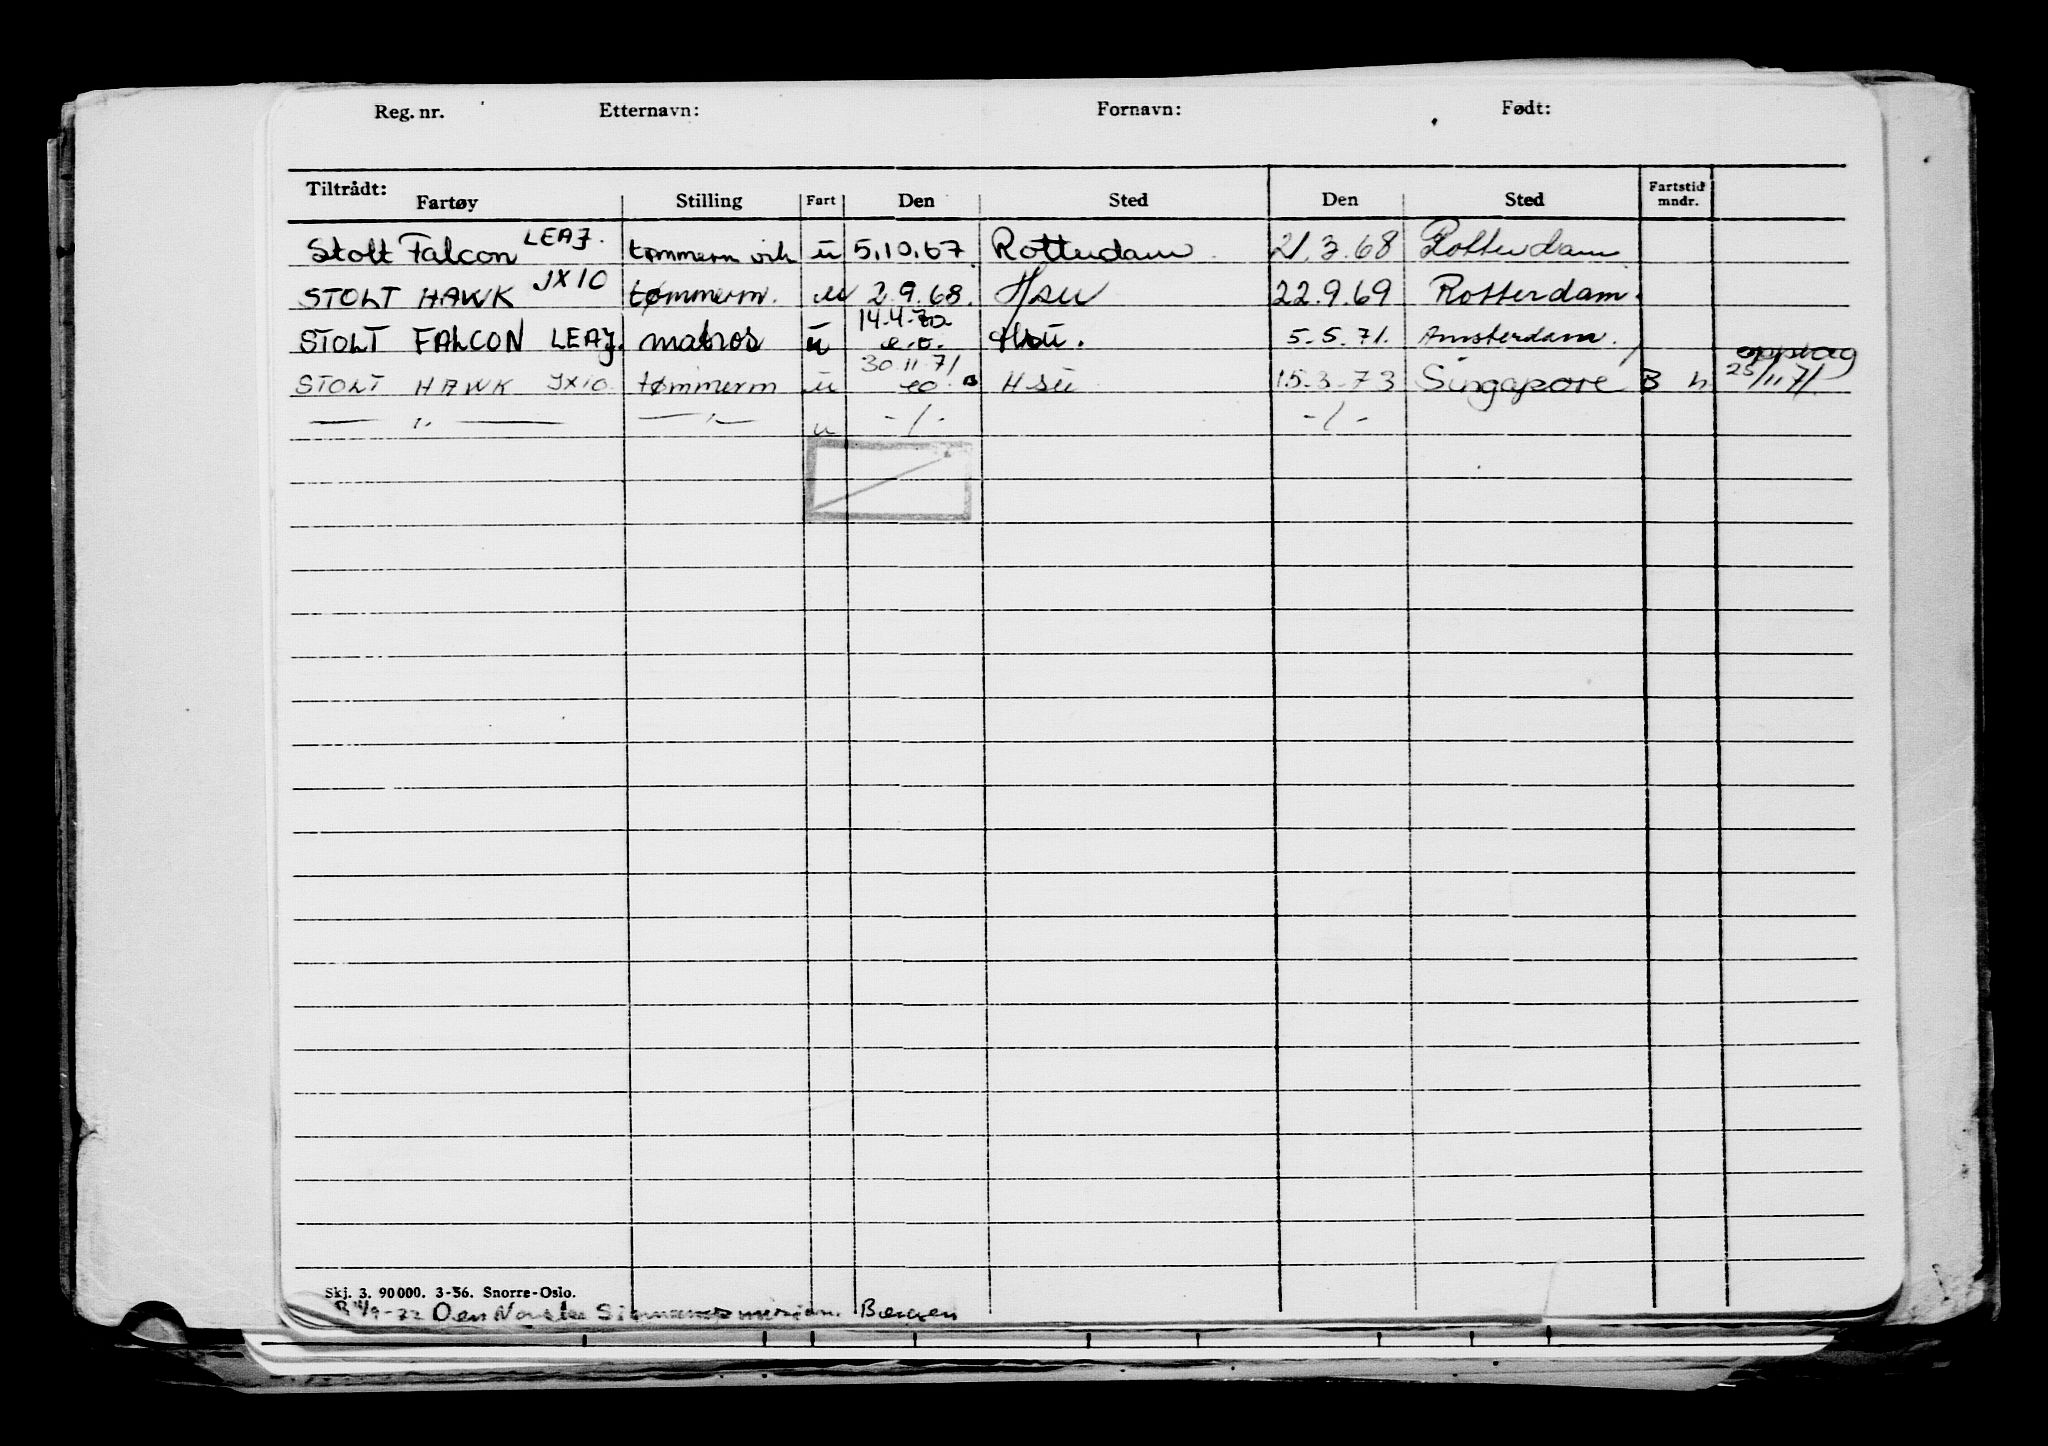 Reg. nr. Etternavn: Fornavn: Født:
Tiltrådt:
Fartøy Stilling Fart Den Sted Den Sted Fartstid mndr.
Stolt Falcon LEAJ. tømmerm vik u 5.10.67. Rotterdam 21.3.68 Rotterdam
STOLT HAWK JXIO tømmerm. u 2.9.68. Hsu 22.9.69 Rotterdam.
14.4.70
STOLT FALCON LEAJ. matros u e.o. Hsu. 5.5.71. Amsterdam.
30.11.71 opptag
STOLT HAWK JXIO. tømmerm u eo Hsu 15.3.73 Singapore B h 25/11.71.
— " — — " — u -/- -/-
Skj. 3. 90 000. 3-56. Snorre-Oslo.
Den Norske Sjømannsmisjon. Bergen